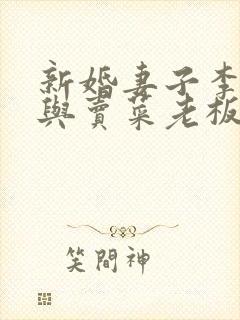 新婚妻子李
與賣菜老板
笑間神